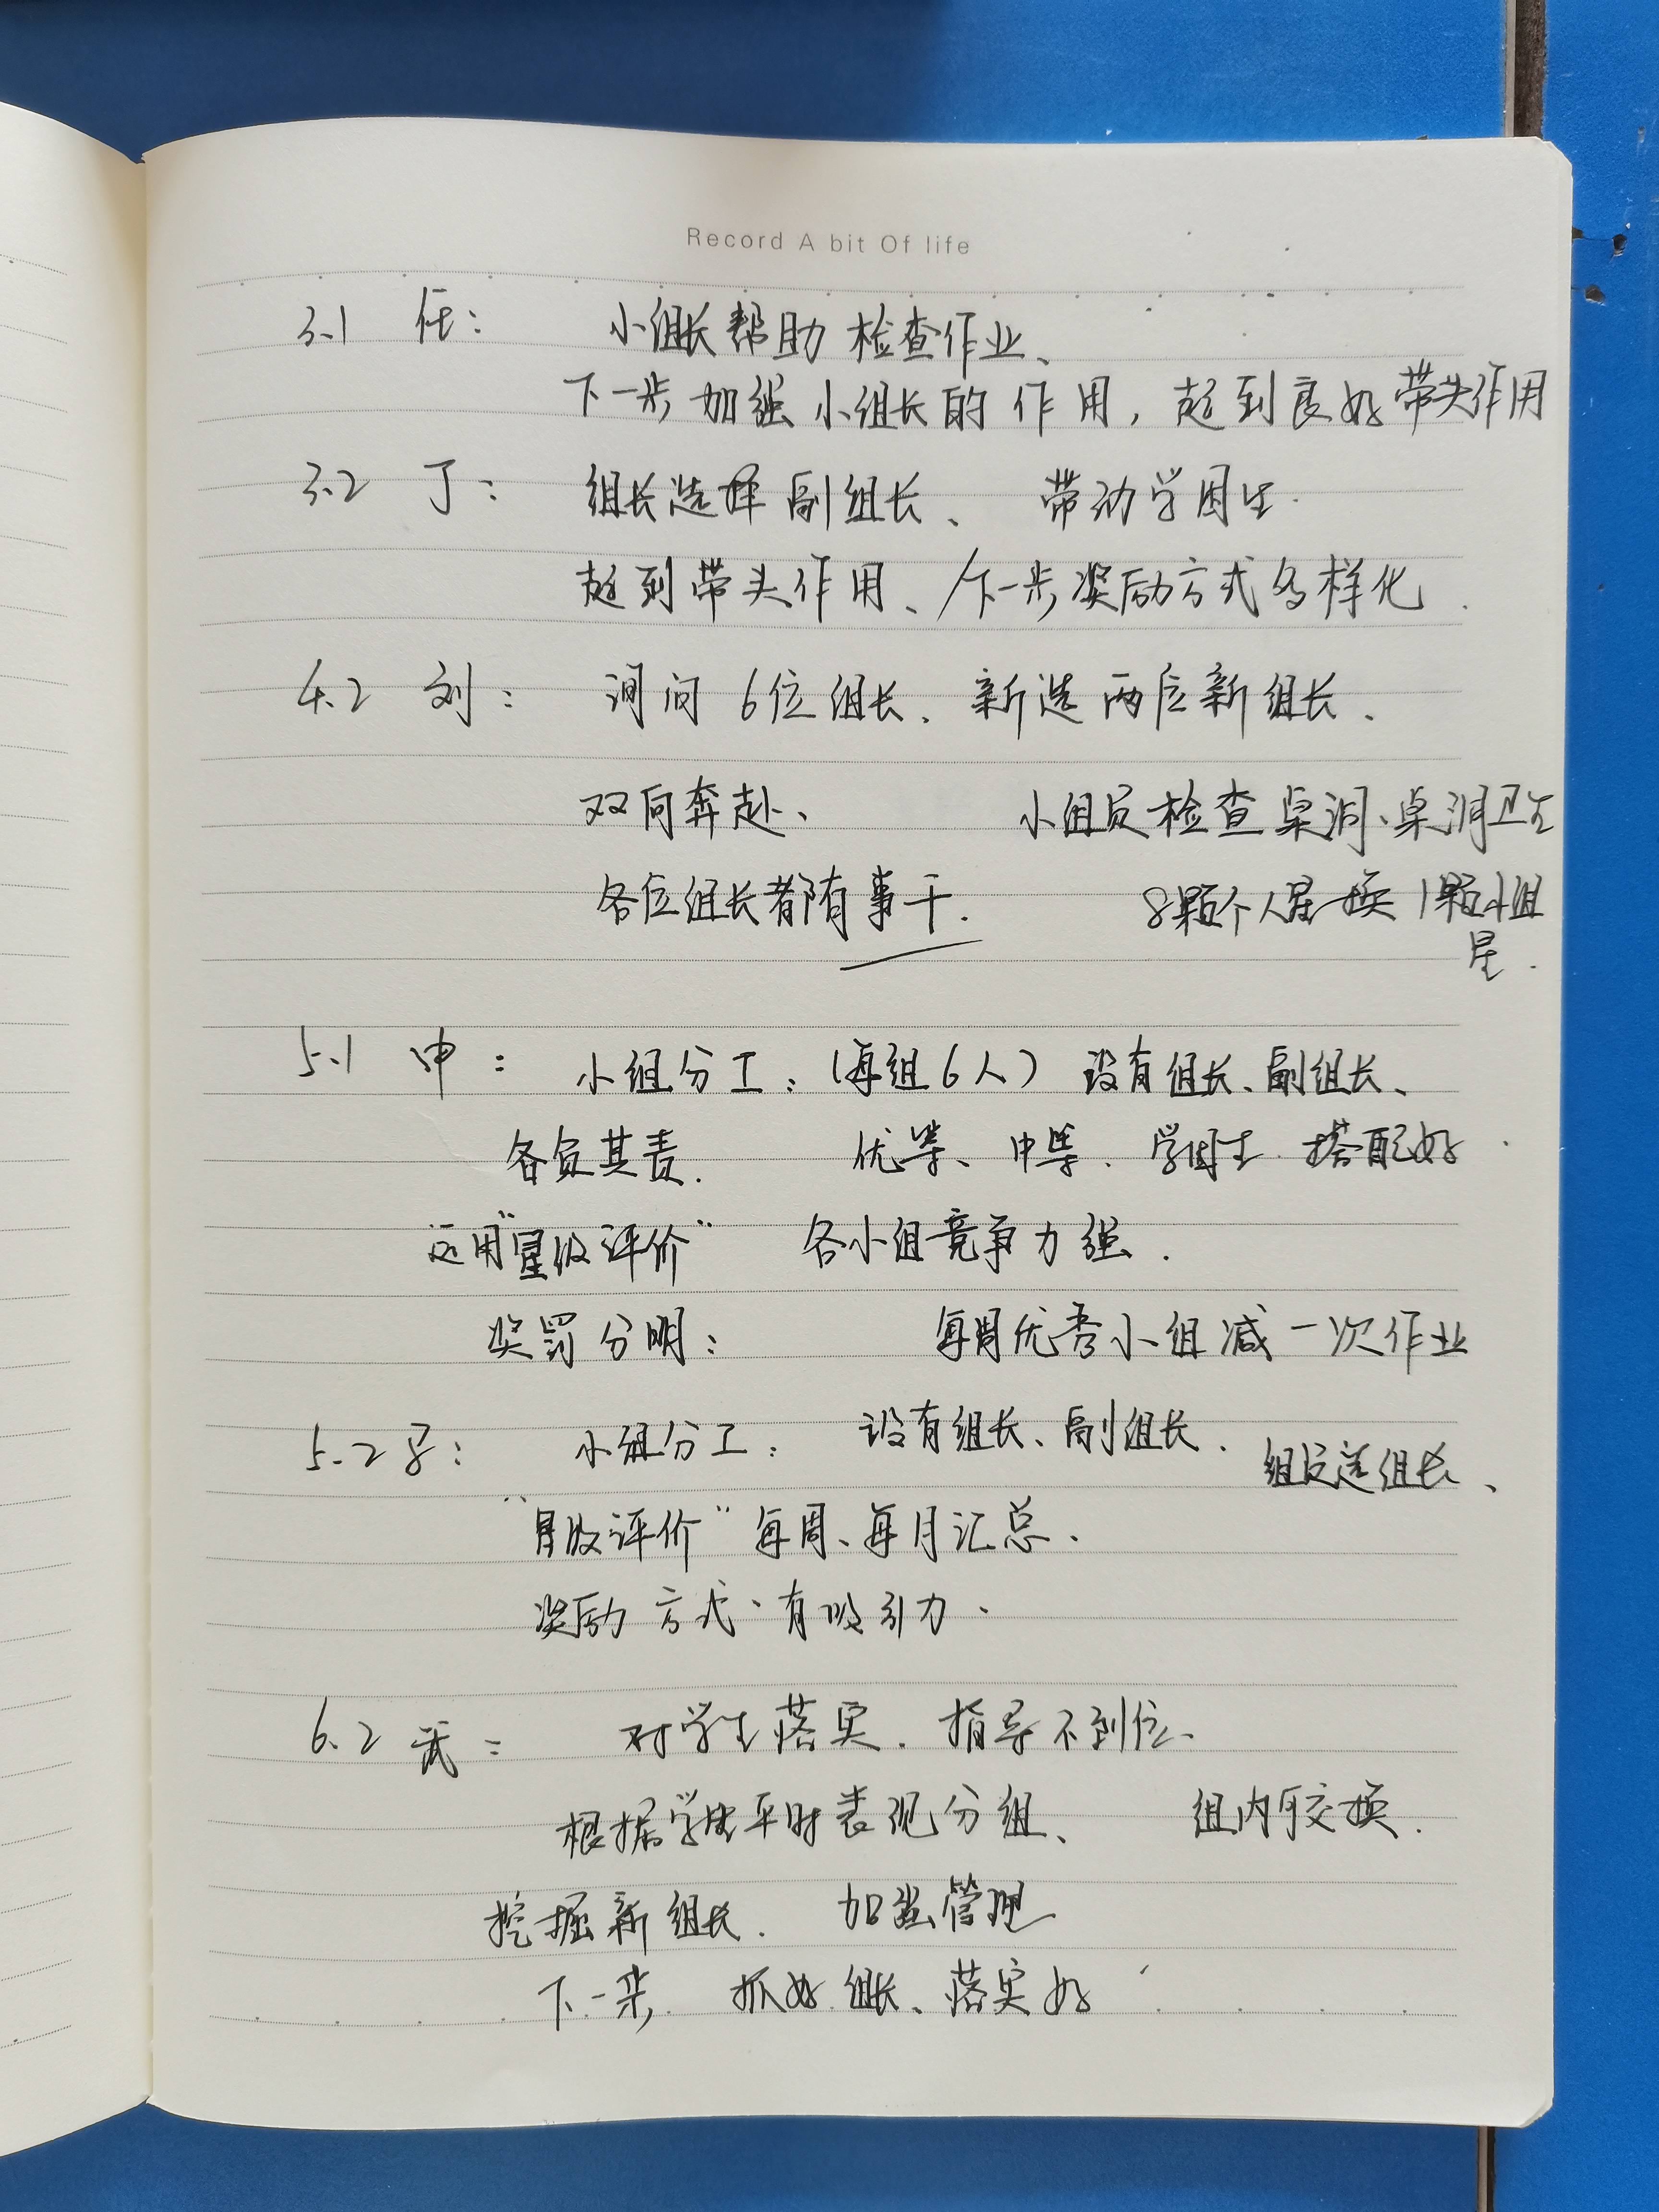 Record A bit Of life
3.1 任： 小组长帮助检查作业、
下一步加强小组长的作用，起到良好带头作用
3.2 丁： 组长选择副组长、 带动学困生.
起到带头作用、/下一步奖励方式多样化.
4.2 刘： 询问6位组长、新选两位新组长、
双向奔赴、 小组员检查桌洞、桌洞卫生
各位组长都有事干. 8颗个人星换1颗小组
星.
5.1 申： 小组分工：（每组6人）设有组长、副组长、
各负其责. 优等、中等、学困生 搭配好.
运用"星级评价" 各小组竞争力强.
奖罚分明： 每周优秀小组减一次作业
5.2 ： 小组分工： 设有组长、副组长. 组员选组长、
"星级评价"每周、每月汇总.
奖励方式、有吸引力、
6.2 武： 对学生落实、指导不到位、
根据学生平时表现分组、 组内可交换.
挖掘新组长. 加强管理
下一步, 抓好组长、落实好